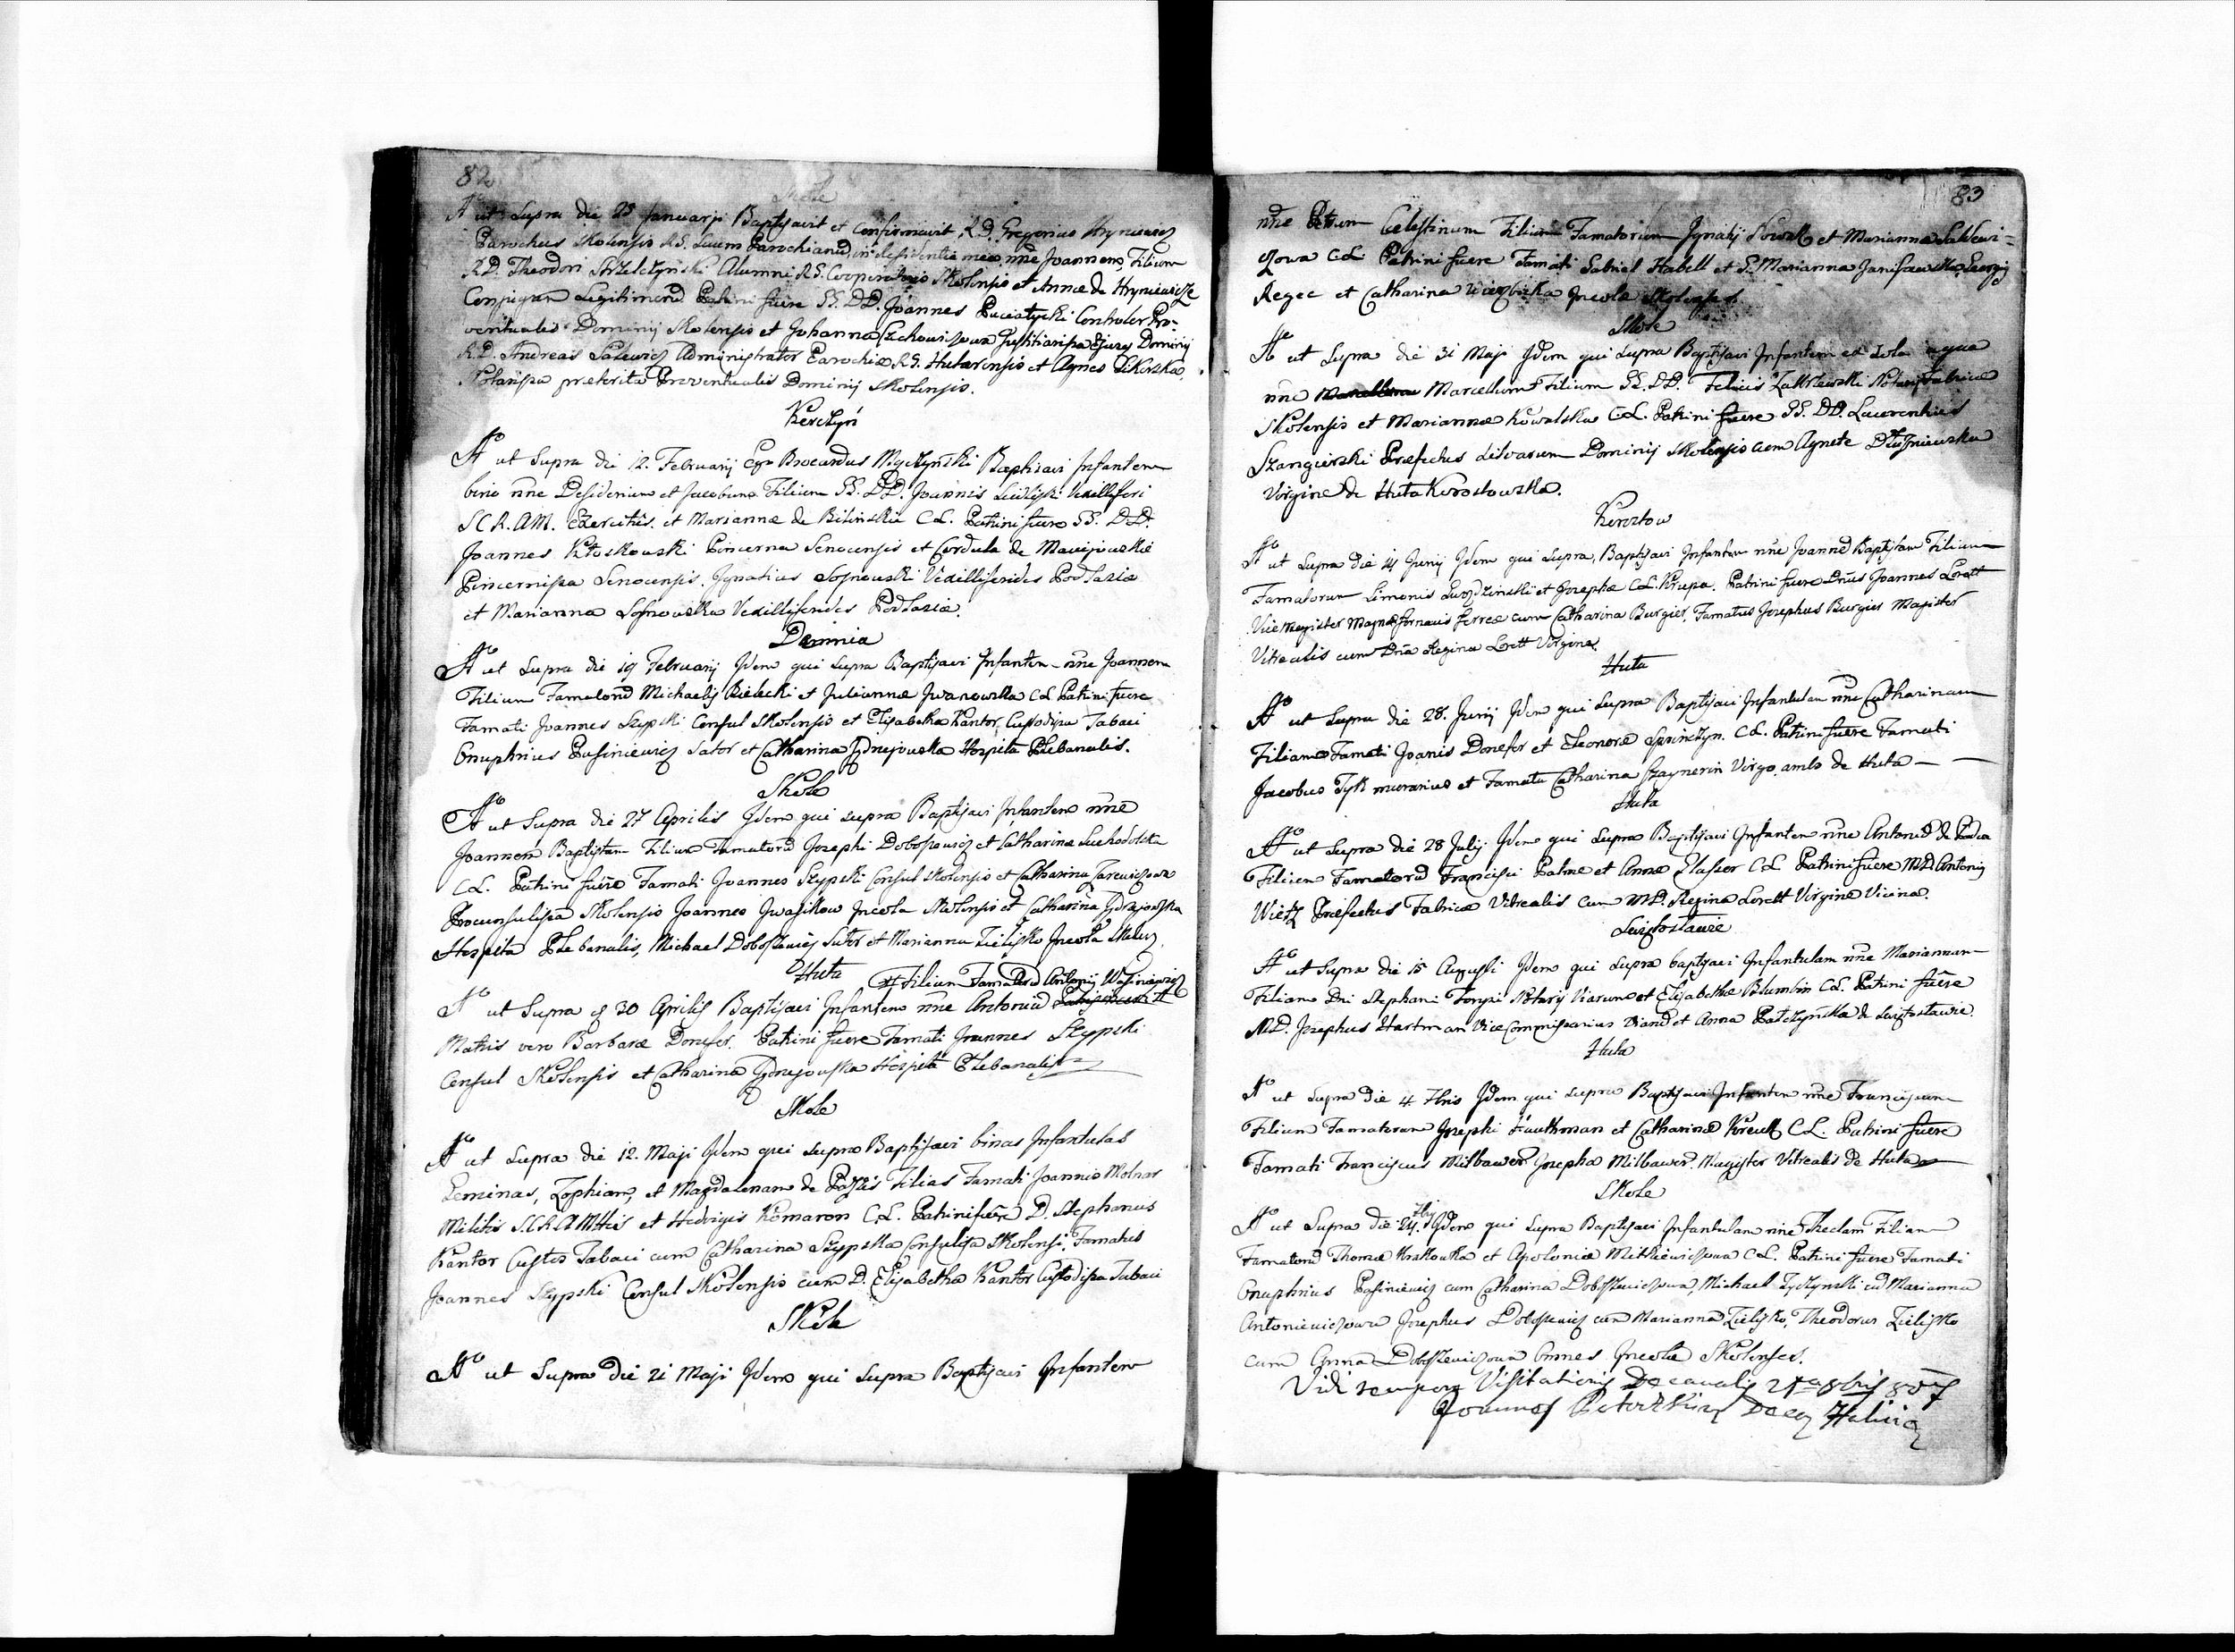 82
Skole
Aº ut Supra die 23 Januarji Baptisavit et Confirmavit R.D. Gregorius Hryniewicz
Parochus Skolensis R.G. Suum Parochianū in residentia mea, nñe Joannem, Filium
R.D. Theodori Strzelczyński Alumni R.G. Cooperatoris Skolensis et Anna de Hryniewicze
Conjugum Legitimorū Patrini fuere SS. DD. Joannes Puciatycki Controlor Pro-
ventualis Dominij Skolensis et Johanna Czechowiczowa Justitiarissa Ejusq Dominij
R.D. Andreas Sasewicz Administrator Parochiæ R.G. Hutarensis et Agnes Sikorska
Notarissa præterita Proventualis Dominij Skolensis.
Kerczyń
Aº ut Supra die 12. Februarij Ego Brocardus Myczyński Baptisavi Infantem
birio nñe Desiderium et Jacobum Filium SS. DD. Joannis Siedliski Vexilliferi
S.C.R.AM. Exercitûs. et Mariannæ de Bilinskie C.L. Patrini fuere SS. DD.
Joannes Kłoskowski Pincerna Senocensis et Cordula de Maciejowskie
Pincernissa Senocensis, Ignatius Sosnowski Vexilliferides Podlasiæ
et Marianna Sosnowska Vexilliferides Podlasiæ.
Demnia
Aº ut Supra die 19 Februarij Idem qui Supra Baptisavi Infantem nñe Joannem
Filium Famatorū Michaelis Bielecki et Julianna Iwanowska C.L. Patrini fuere
Famati Joannes Szypski Consul Skolensis et Elisabetha Kantor, Custodissa Tabaci
Onuphrius Pasiniewicz Sator et Catharina Jędrzejowska Hospita Plebanalis.
Skole
Aº ut Supra die 27 Aprilis Idem qui Supra Baptisavi Infantem nñe
Joannem Baptistam Filium Famatorū Josephi Doboszewicz et Catharina Suchodolska
C.L. Patrini fuere Famati Joannes Szypski Consul Skolensis et Catharina Tarewiczowa
Proconsulissa Skolensis Joannes Iwasikow Incola Skolensis et Catharina Jędrzejowska
Hospita Plebanalis, Michael Doboszewicz Sutor et Marianna Zielisko Incola
Huta # Filium Famatorū Antonij Wasiniewicz
Aº ut Supra 30 Aprilis Baptisavi Infantem nñe Antoniū #
Matris vero Barbaræ Donefer. Patrini fuere Famati Joannes Szypski
Consul Skolensis et Catharina Jędrzejowska Hospita Plebanalis
Skole
Aº ut Supra die 12. Maji Idem qui Supra Baptisavi binas Infantulas
Geminas, Zophiam, et Magdalenam de Pazzis Filias Famati Joannis Molnar
Militis S.C.R.AMttis et Hedvigis Komaron C.L. Patrini fuere D. Stephanus
Kantor Custos Tabaci cum Catharina Szypska Consulissa Skolensi, Famatus
Joannes Szypski Consul Skolensis cum D. Elisabetha Kantor Custodissa Tabaci
Skole
Aº ut Supra die 21 Maji Idem qui Supra Baptisavi Infantem
83
nñe Petrum Celestinum Filium Famatorum Ignatij Nowak et Marianna Salewi-
czowa C.L. Patrini fuere Famati Gabriel Habell et S. Marianna Janiszewska, Georgij
Regec et Catharina Wierzbicka Incolæ Skolenses.
Skole
Aº ut Supra die 31 Maji Idem qui Supra Baptisavi Infantem ex Sola aqua
nñe Marcellum Filium SS. DD. Felicis Zakrzewski Notarij Fabricæ
Skolensis et Marianna Kowalska C.L. Patrini fuere SS. DD. Laurentius
Szangierski Præfectus silvarum Dominij Skolensis cum Agnete Dłużniewska
Virgine de Huta Korostowska.
Korostow
Aº ut Supra die 14 Junij Idem qui Supra, Baptisavi Infantem nñe Joannē Baptistam Filium
Famatorum Simonis Gwozdzinski et Josepha C.L. Krupa. Patrini fuere Dnus Joannes Lorett
Vice Magister Magnæ fornacis ferreæ cum Catharina Burgier, Famatus Josephus Burgier Magister
Vitrealis cum Dna Regina Lorett Virgine.
Huta
Aº ut Supra die 28. Junij Idem qui Supra Baptisavi Infantulam nñe Catharinam
Filiam Famati Joanis Donefer et Eleonoræ Sprinczyn. C.L. Patrini fuere Famati
Jacobus Tyk murarius et Famata Catharina Szaynerin Virgo. ambo de Huta
Huta
Aº ut Supra die 28 July. Idem qui Supra Baptisavi Infantem nñe Antoniū de Padua
Filium Famatorū Francisci Palme et Anna Elasser C.L. Patrini fuere M.D. Antonij
Wietz Præfectus Fabricæ Vitrealis cum M.D. Regina Lorett Virgine Vicina.
Swiętosławie
Aº ut Supra die 15 Augusti Idem qui Supra baptisavi Infantulam nñe Mariannam
Filiam Dni Stephani Forysi Notarij Viarum et Elisabethæ Blumbin C.L. Patrini fuere
M.D. Josephus Hartman Vice Commissarius Viarū et Anna Patczyńska de Swiętosławie.
Huta
Aº ut Supra die 4 7bris Idem qui supra Baptisavi Infantem nñe Franciscum
Filium Famatorum Josephi Fauthman et Catharina Kreutz C.L. Patrini fuere
Famati Franciscus Milbawer Josepha Milbawer. Magister Vitrealis de Huta
Skole
Aº ut Supra die 24. 7bris Idem qui Supra Baptisavi Infantulam nñe Theclam Filiam
Famatorū Thomæ Krakowka et Apolonia Mitkiewiczowa C.L. Patrini fuere Famati
Onuphrius Pasiniewicz cum Catharina Doboszewiczowa, Michael Tyczynski cū Marianna
Antoniewiczowa Josephus Doboszewicz cum Marianna Zielisko, Theodorus Zielisko
cum Anna Doboszewiczowa Omnes Incolæ Skolenses.
Vidi tempore Visitationis Decanalis 21ª 8bris 807
Joannes